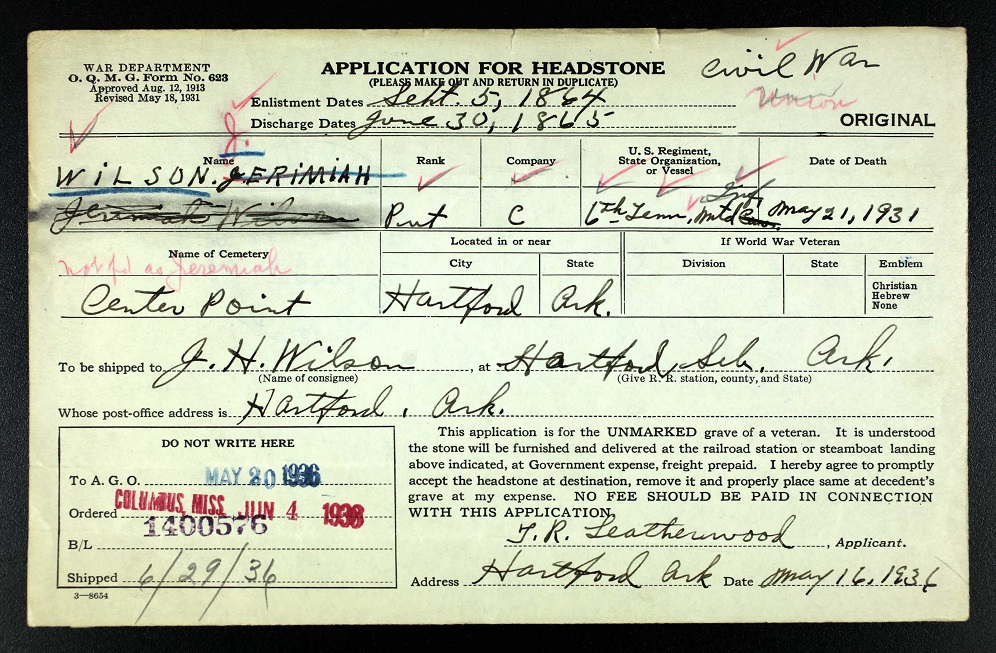 WAR DEPARTMENT
O. Q. M. G. Form No. 623
Approved Aug. 12, 1913
Revised May 18, 1931
APPLICATION FOR HEADSTONE
(PLEASE MAKE OUT AND RETURN IN DUPLICATE)
Civil War
Union
ORIGINAL
Enlistment Dates Sept. 5, 1864
Discharge Dates June 30, 1865
Name
J.
WILSON. JERIMIAH
Jeremiah Wilson
Rank
Pvt
Company
C
U. S. Regiment, State Organization, or Vessel
Inf.
6th Tenn. Mtd
Date of Death
May 21, 1931
Name of Cemetery
not fd as Jeremiah
Center Point
Located in or near
City State
Hartford Ark.
If World War Veteran
Division State Emblem
Christian
Hebrew
None
To be shipped to J. H. Wilson, at Hartford, Seb. Ark.
(Name of consignee) (Give R. R. station, county, and State)
Whose post-office address is Hartford, Ark.
DO NOT WRITE HERE
To A. G. O. MAY 20 1936
Ordered COLUMBUS, MISS. JUN 4 1936
1400576
B/L
Shipped 6/29/36
3—8654
This application is for the UNMARKED grave of a veteran. It is understood
the stone will be furnished and delivered at the railroad station or steamboat landing
above indicated, at Government expense, freight prepaid. I hereby agree to promptly
accept the headstone at destination, remove it and properly place same at decedent's
grave at my expense. NO FEE SHOULD BE PAID IN CONNECTION
WITH THIS APPLICATION.
T. R. Leatherwood, Applicant.
Address Hartford Ark Date May 16, 1936